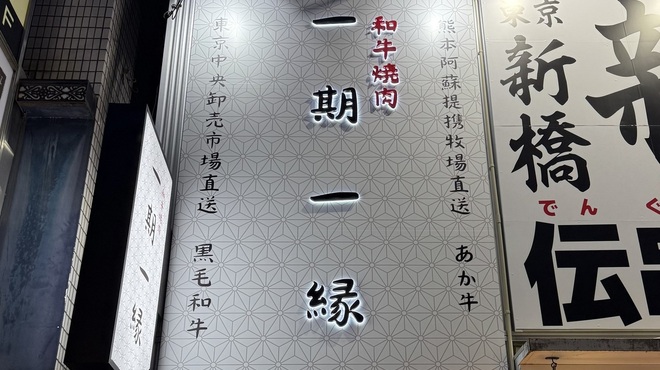 熊本阿蘇提携牧場直送 あか牛
和牛焼肉
一期一縁
東京中央卸売市場直送 黒毛和牛
一期一縁
東京
新橋
でんぐ
伝